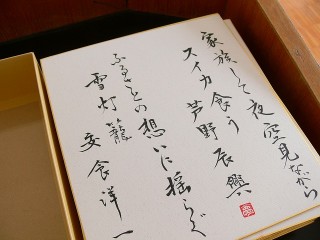 家族して夜空見ながら
スイカ食う 芦野辰興
ふるさとの想いに揺らぐ
雪灯籠 安食洋一